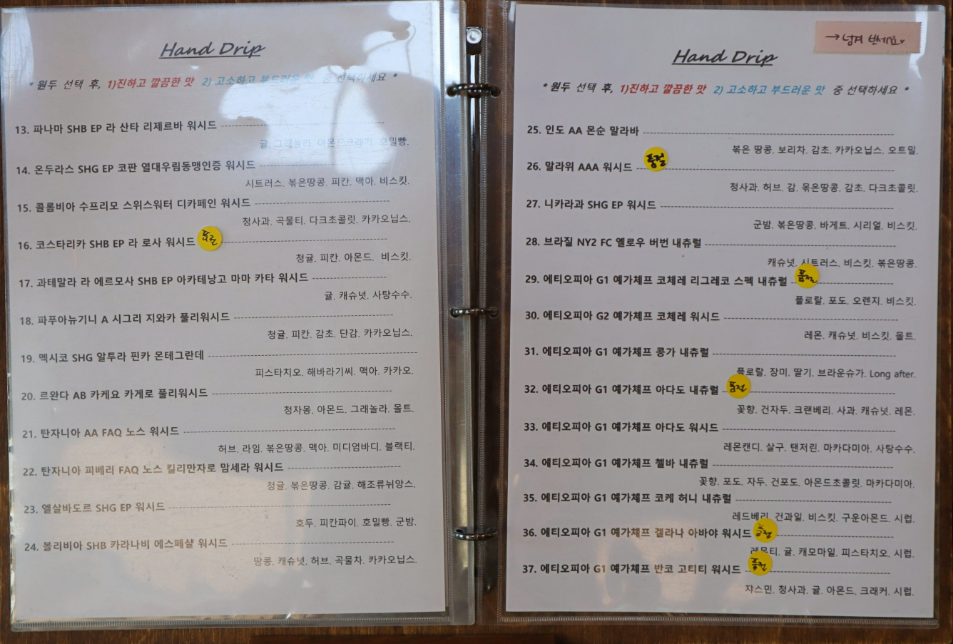 Hand Drip
* 원두 선택 후, 1)진하고 깔끔한 맛 2) 고소하고 부드러운 맛 중 선택하세요 *
13. 파나마 SHB EP 라 산타 리제르바 워시드
귤, 그래놀라, 아몬드크래커, 호밀빵.
14. 온두라스 SHG EP 코판 열대우림동맹인증 워시드
시트러스, 볶은땅콩, 피칸, 맥아, 비스킷.
15. 콜롬비아 수프리모 스위스워터 디카페인 워시드
청사과, 곡물티, 다크초콜릿, 카카오닙스.
16. 코스타리카 SHB EP 라 로사 워시드 품절
청귤, 피칸, 아몬드, 비스킷.
17. 과테말라 라 에르모사 SHB EP 아카테낭고 마마 카타 워시드
귤, 캐슈넛, 사탕수수.
18. 파푸아뉴기니 A 시그리 지와카 풀리워시드
청귤, 피칸, 감초, 단감, 카카오닙스.
19. 멕시코 SHG 알투라 핀카 몬테그란데
피스타치오, 해바라기씨, 맥아, 카카오.
20. 르완다 AB 카케요 카게로 풀리워시드
청자몽, 아몬드, 그래놀라, 몰트.
21. 탄자니아 AA FAQ 노스 워시드
허브, 라임, 볶은땅콩, 맥아, 미디엄바디, 블랙티.
22. 탄자니아 피베리 FAQ 노스 킬리만자로 맘세라 워시드
청귤, 볶은땅콩, 감귤, 해조류뉘앙스.
23. 엘살바도르 SHG EP 워시드
호두, 피칸파이, 호밀빵, 군밤.
24. 볼리비아 SHB 카라나비 에스페샬 워시드
땅콩, 캐슈넛, 허브, 곡물차, 카카오닙스.
→ 넘겨 보세요
Hand Drip
* 원두 선택 후, 1)진하고 깔끔한 맛 2) 고소하고 부드러운 맛 중 선택하세요 *
25. 인도 AA 몬순 말라바
볶은 땅콩, 보리차, 감초, 카카오닙스, 오트밀.
26. 말라위 AAA 워시드 품절
청사과, 허브, 감, 볶은땅콩, 감초, 다크초콜릿.
27. 니카라과 SHG EP 워시드
군밤, 볶은땅콩, 바게트, 시리얼, 비스킷.
28. 브라질 NY2 FC 옐로우 버번 내츄럴
캐슈넛, 시트러스, 비스킷, 볶은땅콩.
29. 에티오피아 G1 예가체프 코체레 리그레코 스펙 내츄럴 품절
플로랄, 포도, 오렌지, 비스킷.
30. 에티오피아 G2 예가체프 코체레 워시드
레몬, 캐슈넛, 비스킷, 몰트.
31. 에티오피아 G1 예가체프 콩가 내츄럴
플로랄, 장미, 딸기, 브라운슈가, Long after.
32. 에티오피아 G1 예가체프 아다도 내츄럴 품절
꽃향, 건자두, 크랜베리, 사과, 캐슈넛, 레몬.
33. 에티오피아 G1 예가체프 아다도 워시드
레몬캔디, 살구, 탠저린, 마카다미아, 사탕수수.
34. 에티오피아 G1 예가체프 첼바 내츄럴
꽃향, 포도, 자두, 건포도, 아몬드초콜릿, 마카다미아.
35. 에티오피아 G1 예가체프 코케 허니 내츄럴
레드베리, 건과일, 비스킷, 구운아몬드, 시럽.
36. 에티오피아 G1 예가체프 겔라나 아바야 워시드 품절
레몬티, 귤, 캐모마일, 피스타치오, 시럽.
37. 에티오피아 G1 예가체프 반코 고티티 워시드 품절
쟈스민, 청사과, 귤, 아몬드, 크래커, 시럽.